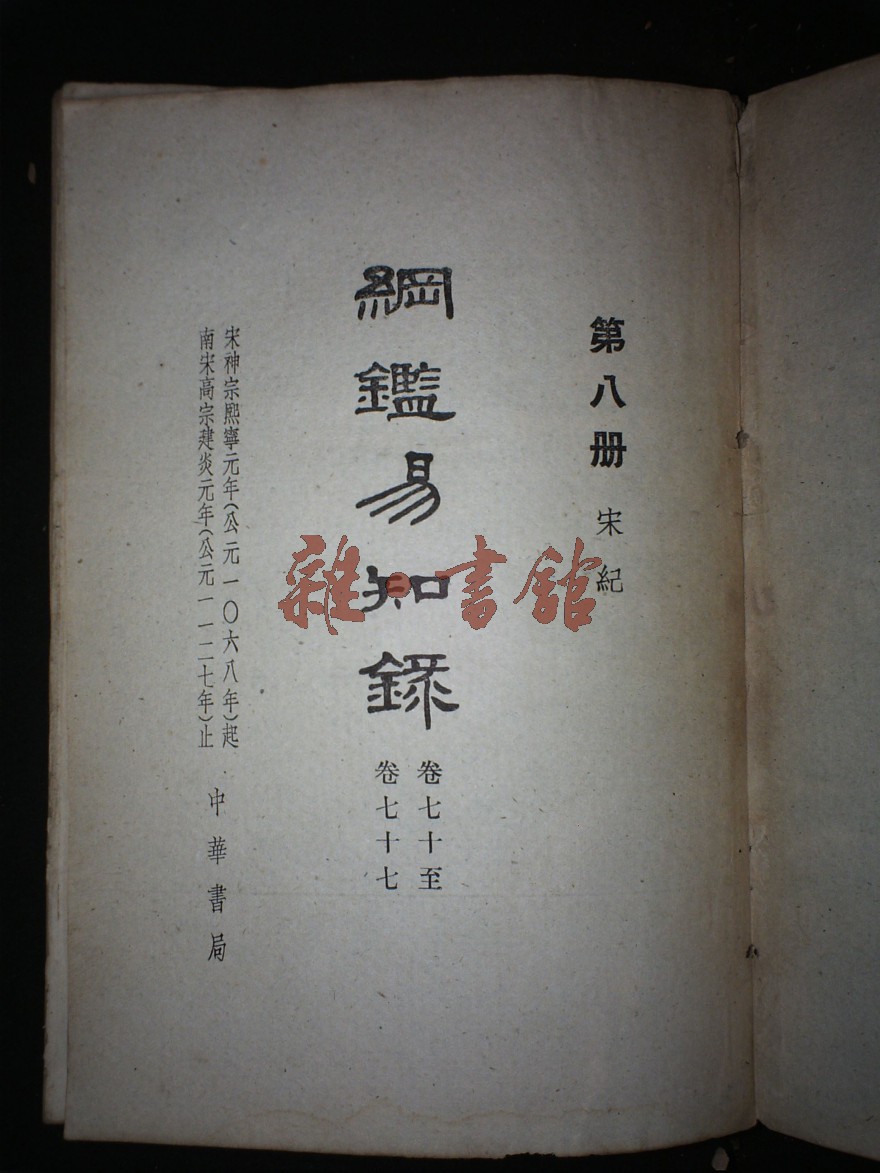 第八册 宋紀
綱鑑易知錄
卷七十至
卷七十七
宋神宗熙寧元年(公元一〇六八年)起
南宋高宗建炎元年(公元一一二七年)止
中華書局
雜·書館